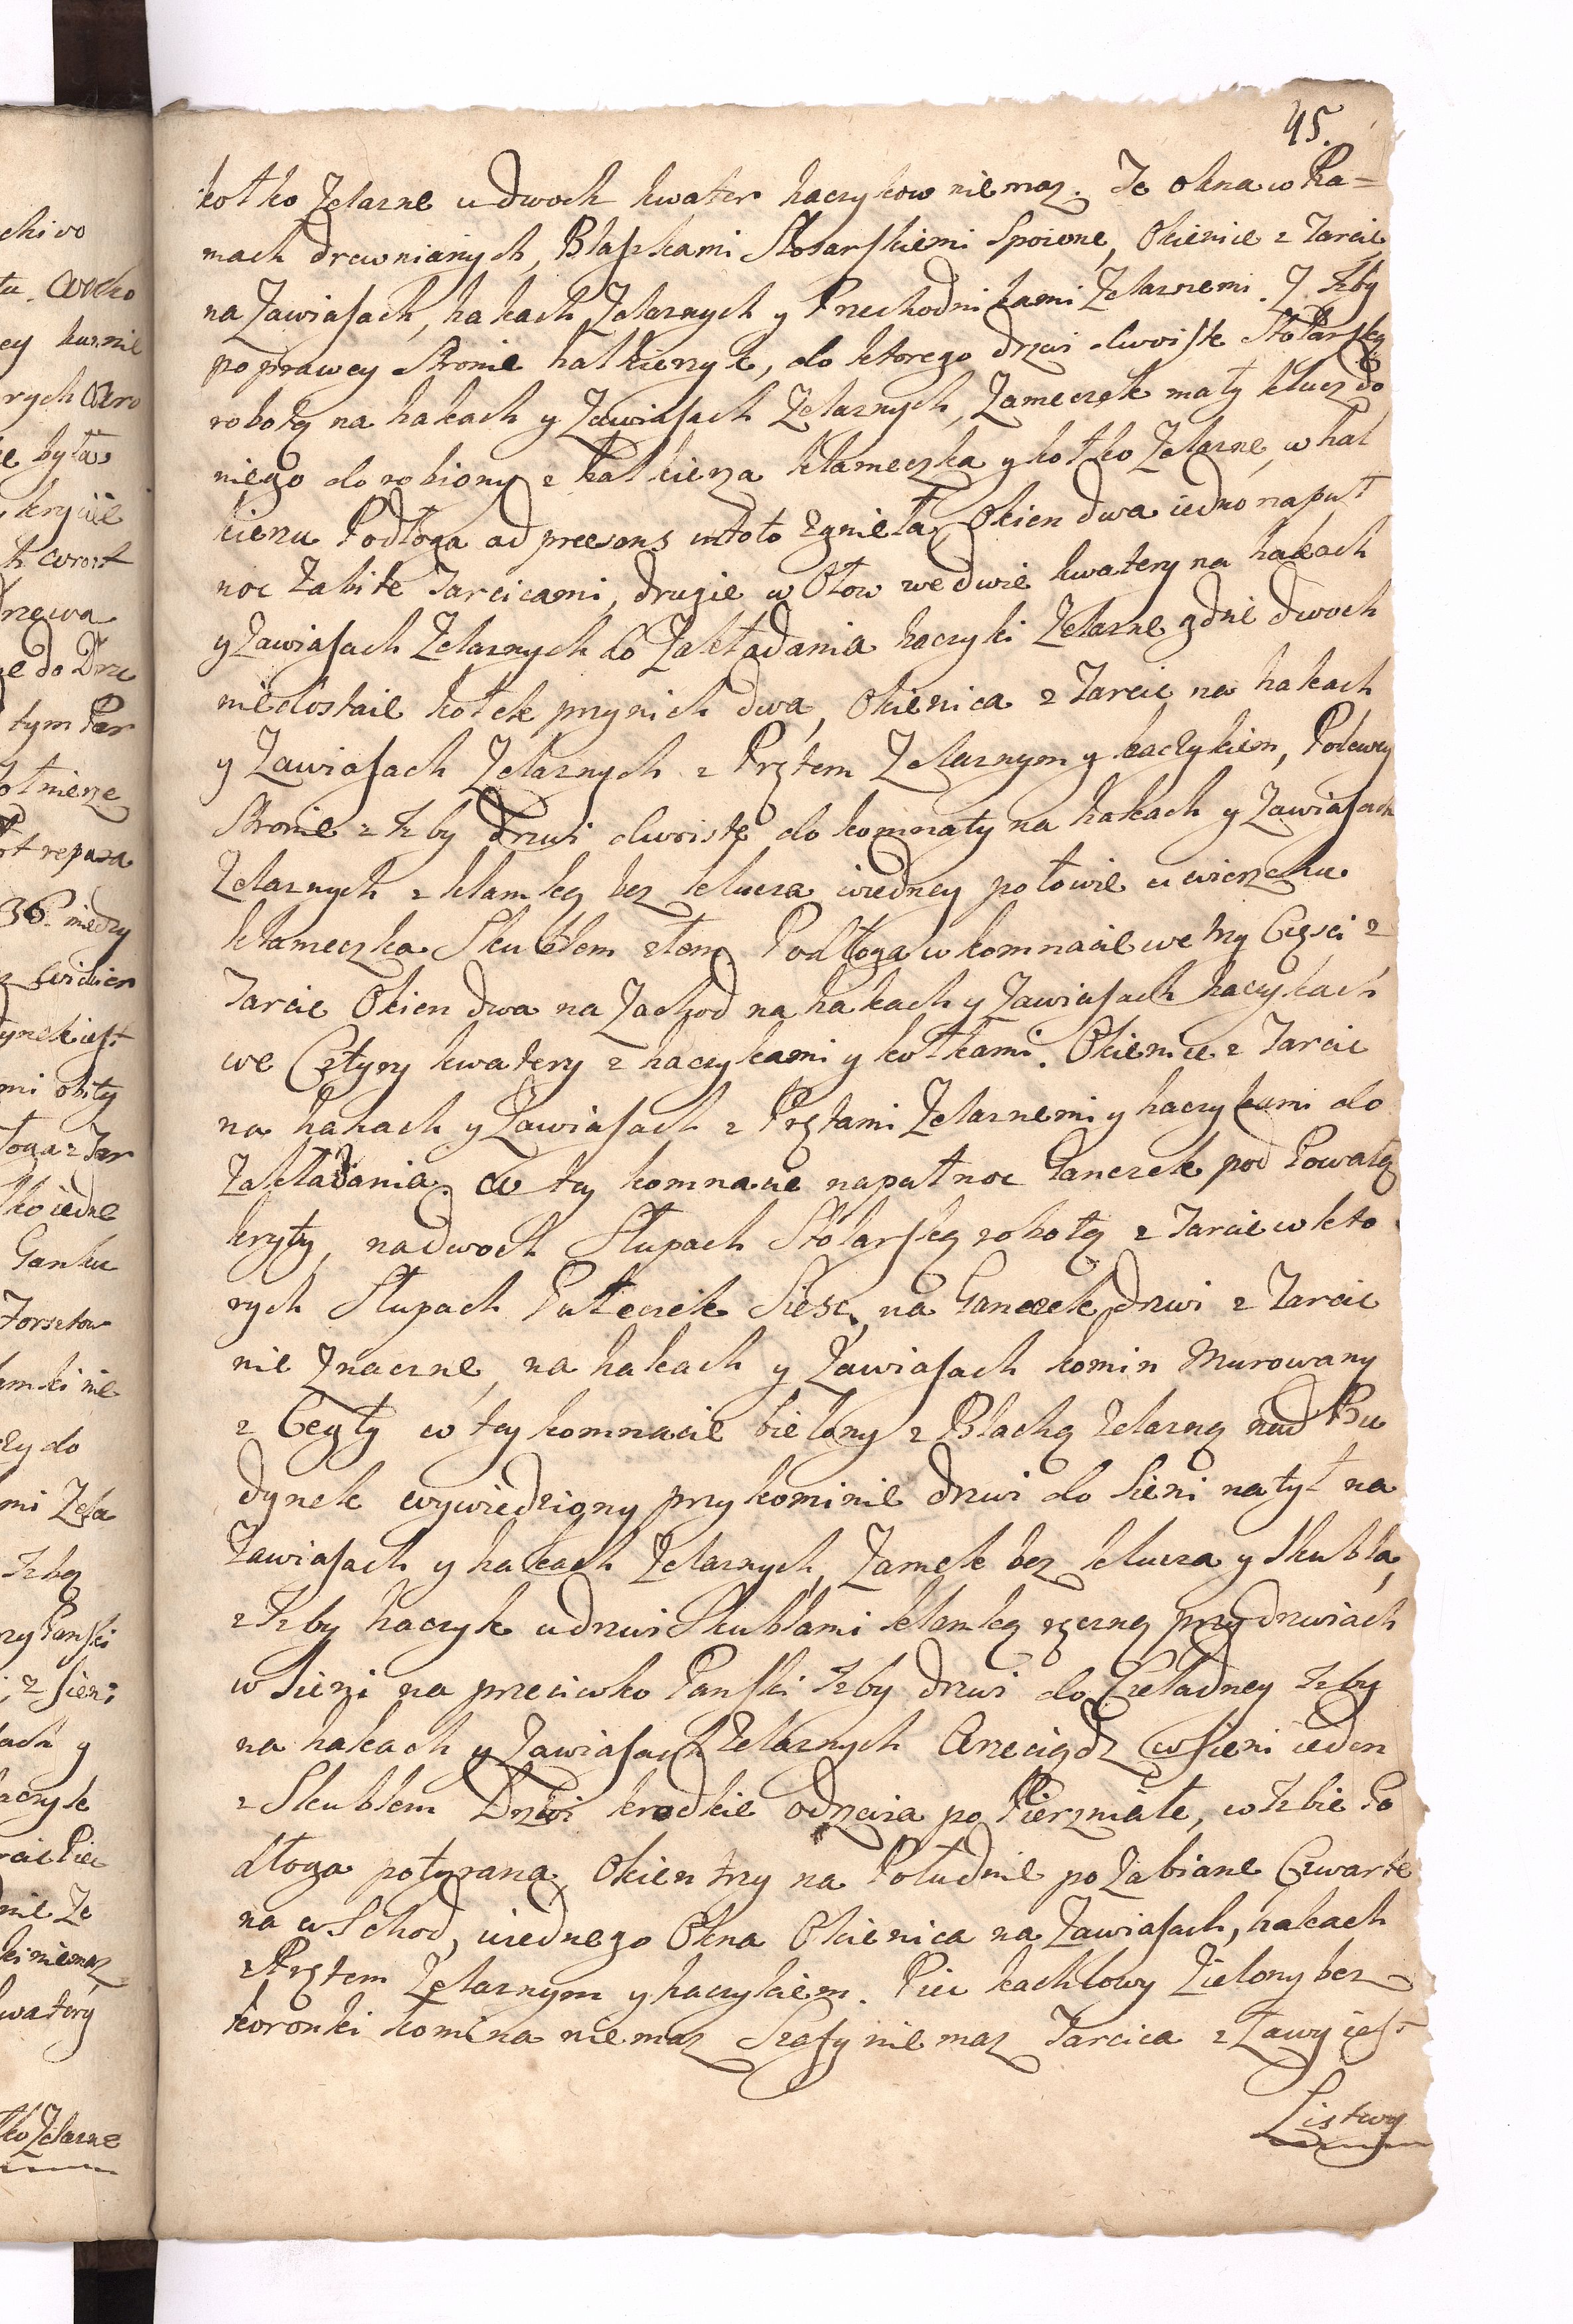 45.
kołko Zelazne u dwoch kwater haczykow niemaz. Te okna w Ra=
mach drewnianych, Blaszkami Slosarskiemi Spoione, Okienice z Tarcic
na Zawiasach, hakach Zelaznych y Przechodnikami Zelaznemi. Z Izby
po prawey Stronie kalkierzyk, do ktorego drzwi dwoiste Stolarską
robotą na hakach y Zawiasach Zelaznych, Zameczek mały klucz do
niego dorobiony z kalkierza klameczka y kołko Zelazne, w kal
kierzu Podłoga ad præsens wtoto zgnieła, Okien dwa iedno na puł
noc zabite Tarcicami, drugie w Ołow we dwie kwatery na hakach
y Zawiasach Zelaznych do Zakładania haczyki Zelazne gdzie dwoch
niedostaie kołek przy nich dwa, Okienica z Tarcic na hakach
y Zawiasach Zelaznych z Prętem Zelaznym y haczykiem, Po lewey
Stronie z Izby Drzwi dwoiste do komnaty na hakach y Zawiasach
Zelaznych z klamką bez klucza w iedney połowie u wierzchu
klameczka Skublem złem. Podłoga w komnacie we trzy Części z
Tarcic Okien dwa na Zachod na hakach y Zawiasach haczykach
we Cztyry kwatery z haczykami y kołkami. Okienice z Tarcic
na hakach y Zawiasach z Prętami Zelaznemi y haczykami do
Zakładania. W tey komnacie na pułnoc Ganczek pod Powałą
kryty, na dwoch Słupach Stolarską robotą z Tarcic w kto
rych Słupach Pułeczek Sześć, na Ganczek drzwi z Tarcic
nie Znaczne, na hakach y Zawiasach komin Murowany
z Cegły w tey komnacie bielony z Blachą Zelazną nad Bu
dynek wywiedziony przy kominie drzwi do Sieni na tył na
Zawiasach y hakach Zelaznych, Zamek bez klucza y Skubla,
z Izby haczyk u drzwi Skublami klamką ręczną przy drzwiach
w Sieni na przeciwko Pański Izby drzwi do Czeladney Izby
na hakach y Zawiasach Zelaznych Wrzeciądz w Sieni ieden
z Skublem Drzwi krodkie odrzwia po Pierzniałe, w Izbie Po
dłoga potyrana, Okien trzy na Południe pozabiane Czwarte
na wschod, u iednego Okna Okienica na Zawiasach, hakach
z Prętem Zelaznym y haczykiem. Piec kachlowy Zielony bez
koronki komina niemasz Szafy niemasz Tarcica z Ławy iest
Listwy